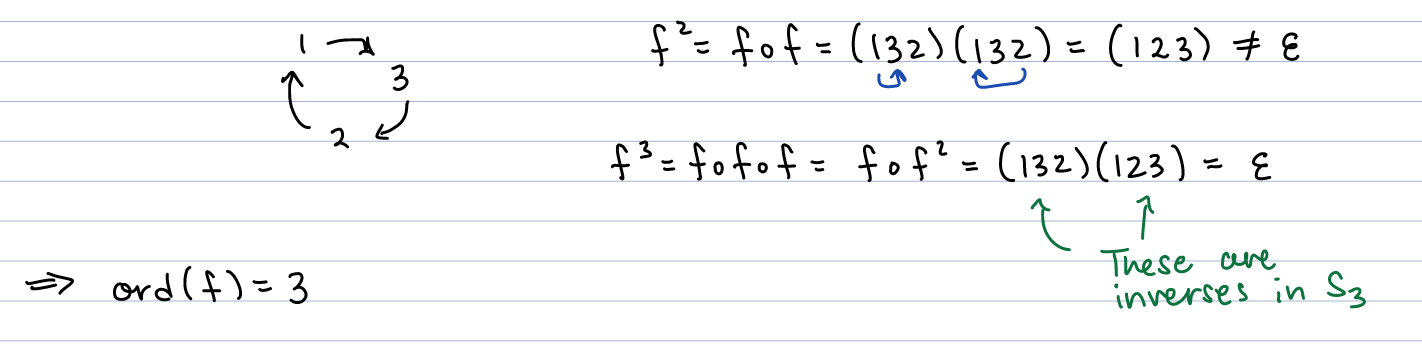 1 → 3 → 2 →
f² = f∘f = (132)(132) = (123) ≠ ε
f³ = f∘f∘f = f∘f² = (132)(123) = ε
These are
inverses in S₃
⇒ ord(f) = 3